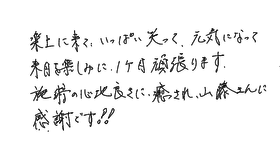 楽上に来て、いっぱい笑って、元気になって
来月を楽しみに、1ケ月頑張ります。
施術の心地良さに、癒っされ、山藤さんに
感謝です!!